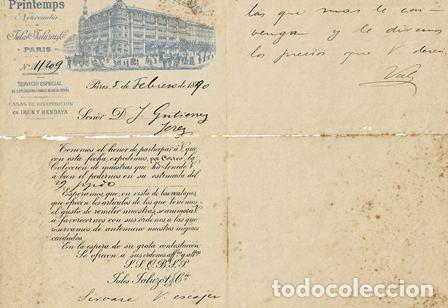 Printemps
Nouveautés
Jules Jaluzot & Cie
PARIS
Nº 11209
SERVICIO ESPECIAL
CASAS DE REEXPEDICION
EN IRUN Y HENDAYA
Paris, 5 de Febrero de 1890
Señor D. J. Gutierrez
Jerez
Tenemos el honor de participar à V. que
con esta fecha, expedimos, por Correo, la
Colección de muestras que ha tenido V.
à bien el pedirnos en su estimada del
29
Esperamos que, en vista de las ventajas
que ofrecen los articulos de los que tenemos
el gusto de remitir muestras, se animará V.
à favorecernos con sus órdenes à las que
reservamos de antemano nuestros mejores
cuidados.
En la espera de su grata contestación
Se ofrecen à sus órdenes
S. S. Q. B. S. M.
Jules Jaluzot & Cie
Sirvase V. escojer
las que mas le con-
vengan y le diremos
los precios que V. desea
todocoleccion